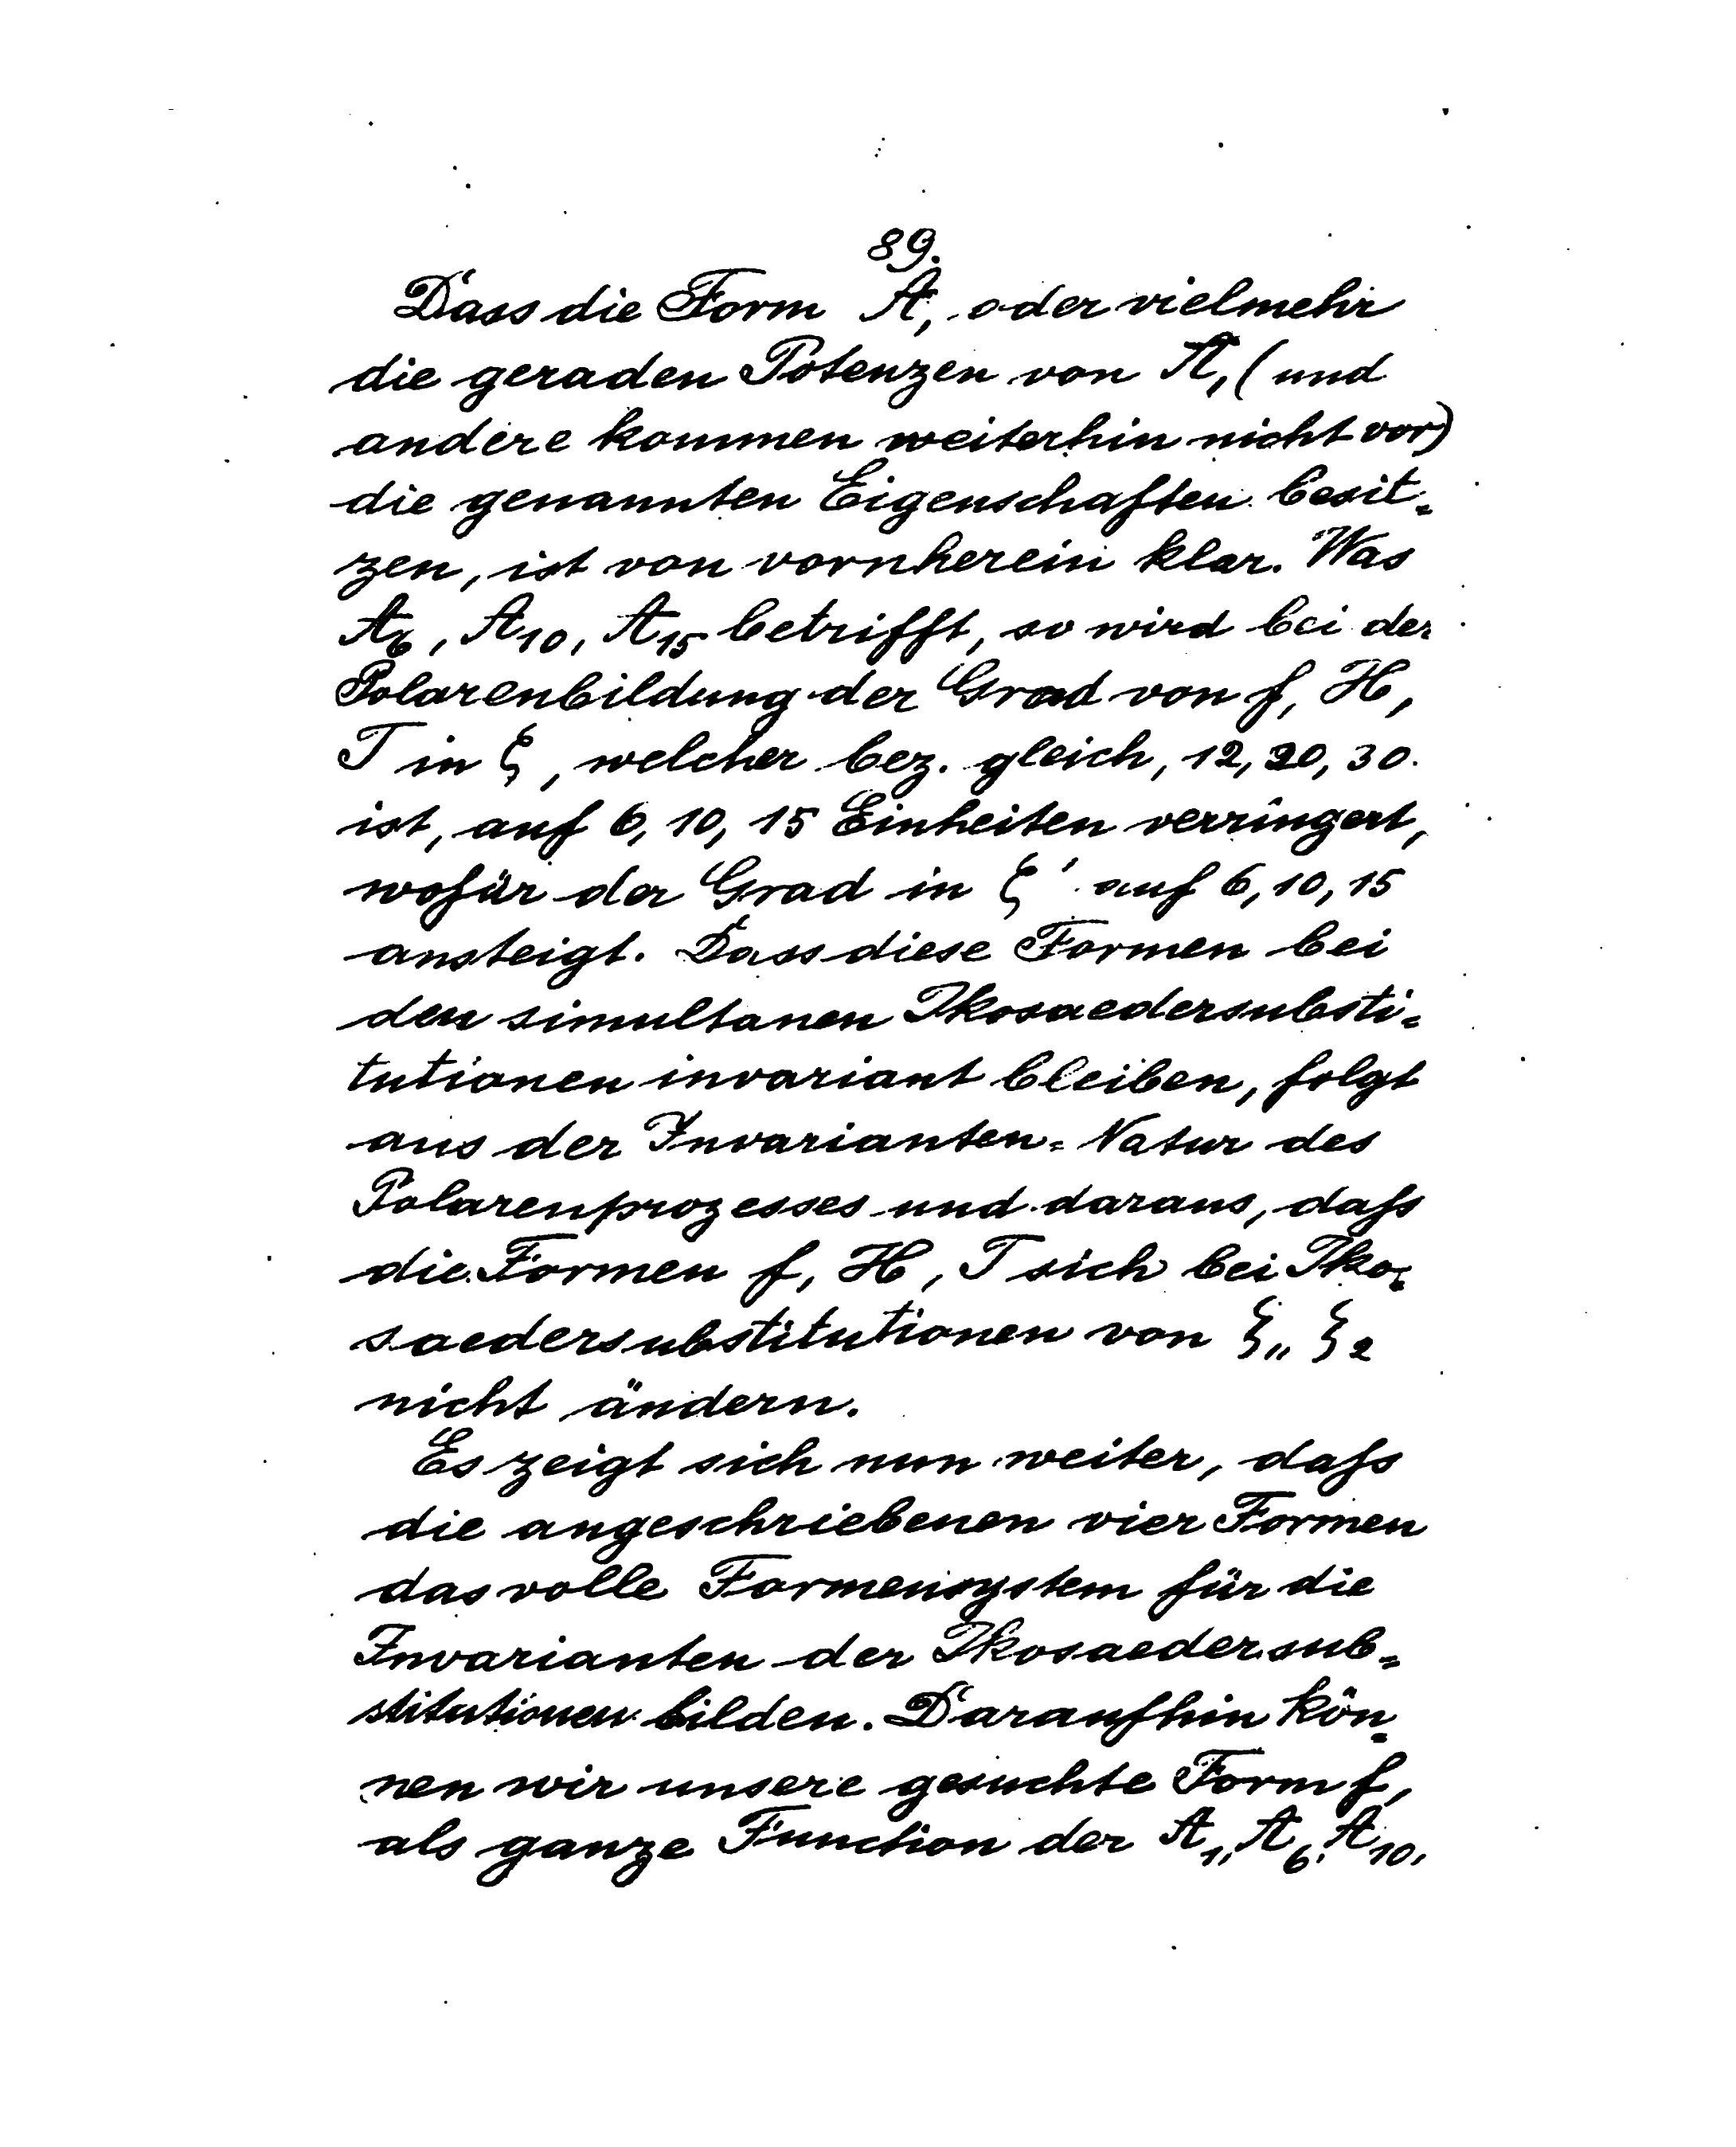 89.
Dass die Form A, oder vielmehr
die geraden Potenzen von A, (und
andere kommen weiterhin nicht vor)
die genannten Eigenschaften besit=
zen, ist von vornherein klar. Was
A₆, A₁₀, A₁₅ betrifft, so wird bei der
Polarenbildung der Grad von f, H,
T in ξ, welcher bez. gleich, 12, 20, 30.
ist, auf 6, 10, 15 Einheiten verringert,
wofür der Grad in ξ' auf 6, 10, 15
ansteigt. Dass diese Formen bei
den simultanen Ikosaedersubsti=
tutionen invariant bleiben, folgt
aus der Invarianten=Natur des
Polarenprozesses und daraus, daß
die Formen f, H, T sich bei Iko=
saedersubstitutionen von ξ₁, ξ₂
nicht ändern.
Es zeigt sich nun weiter, daß
die angeschriebenen vier Formen
das volle Formensystem für die
Invarianten der Ikosaedersub=
stitutionen bilden. Daraufhin kön=
nen wir unsere gesuchte Form f,
als ganze Function der A₁, A₆, A₁₀,